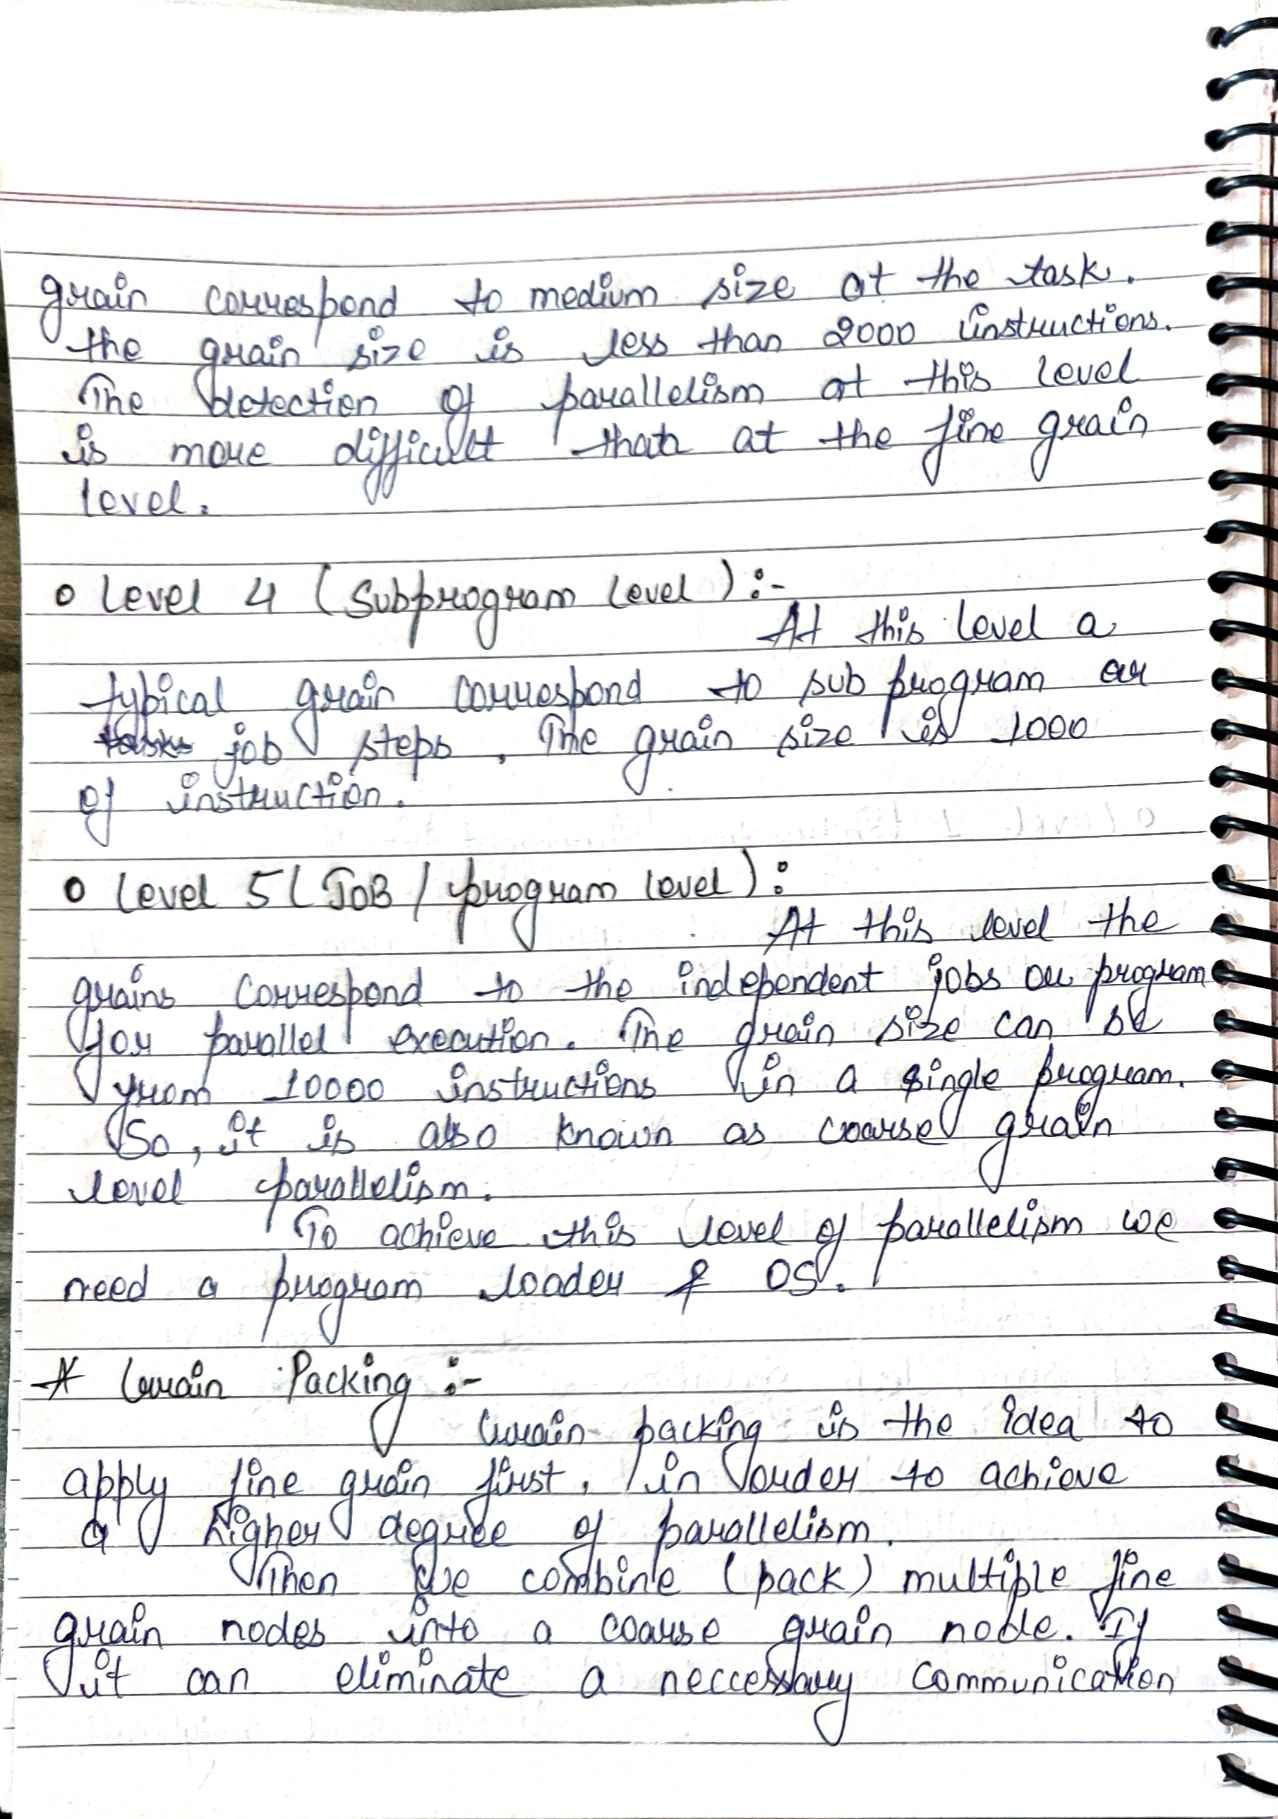 grain correspond to medium size at the task.
the grain size is less than 2000 instructions.
The detection of parallelism at this level
is more difficult than at the fine grain
level.
o Level 4 (Subprogram Level) :-
At this level a
typical grain correspond to sub program or
tasks job steps. The grain size is 1000
of instruction.
o Level 5 ( JOB / program level) :
At this level the
grains correspond to the independent jobs or program
for parallel execution. The grain size can be
from 10000 instructions in a single program.
So, it is also known as coarse grain
level parallelism.
To achieve this level of parallelism we
need a program loader & OS.
* Grain Packing :-
Grain packing is the idea to
apply fine grain first, in order to achieve
a higher degree of parallelism.
Then we combine (pack) multiple fine
grain nodes into a coarse grain node. If
it can eliminate a neccessary communication